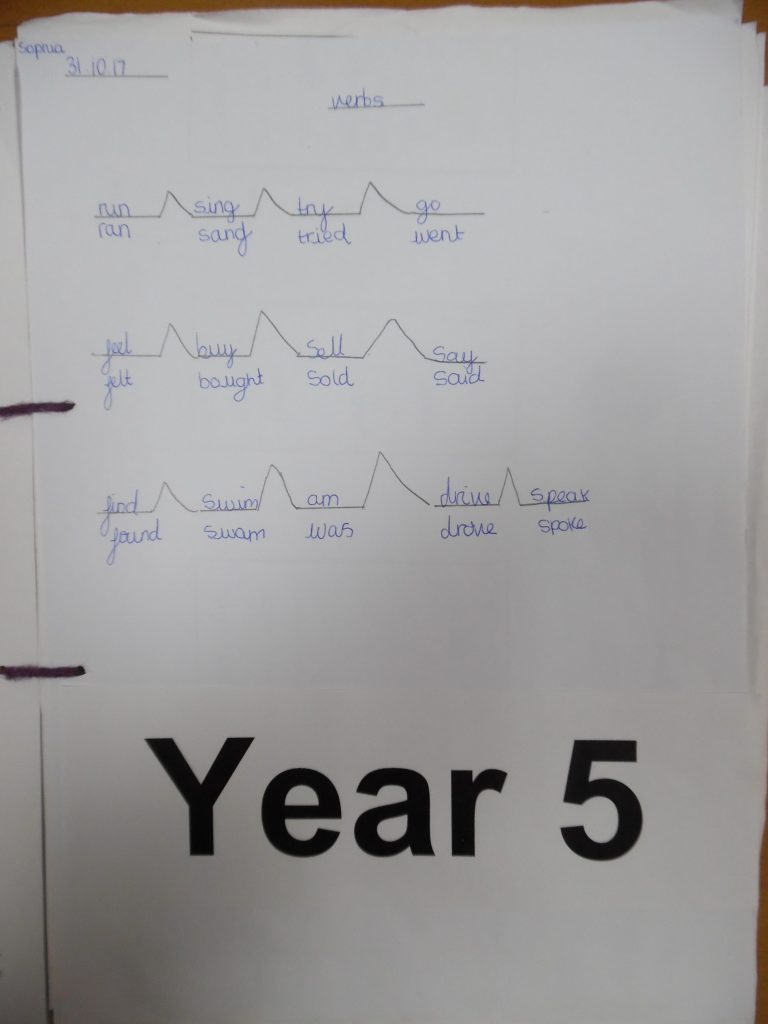 Sophia
31.10.17
verbs
run sing try go
ran sang tried went
feel buy sell say
felt bought sold said
find swim am drive speak
found swam was drove spoke
Year 5